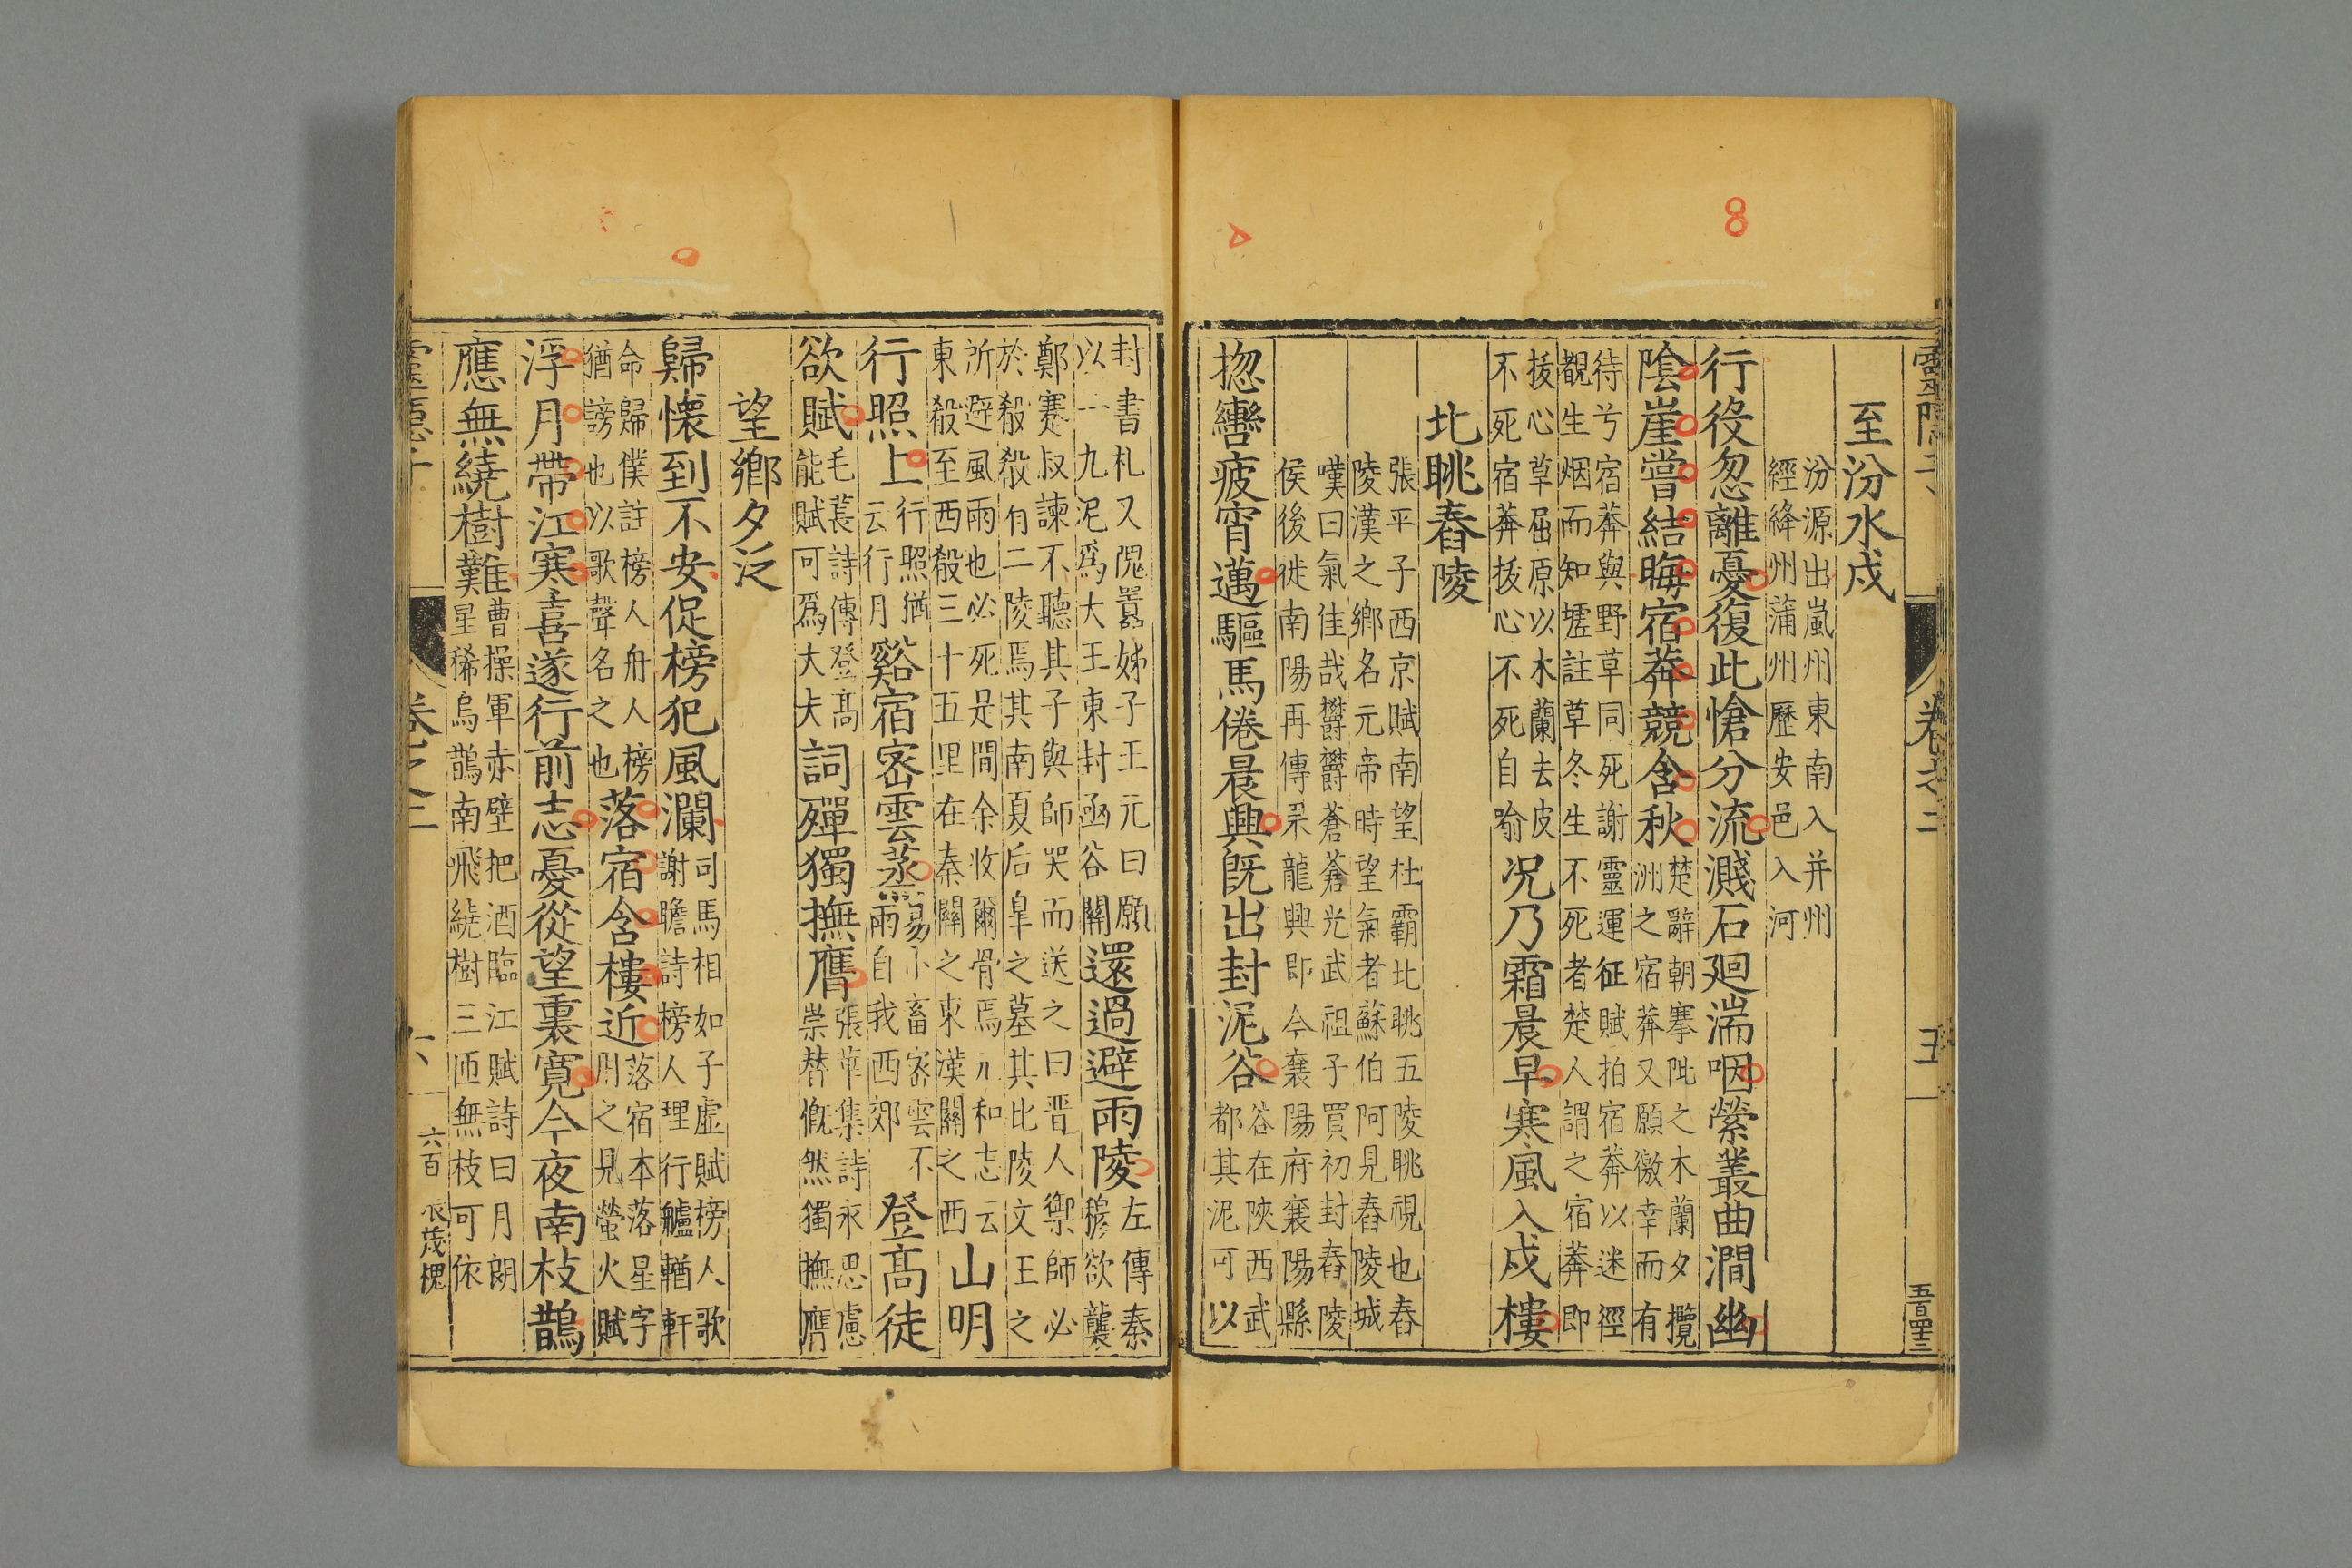 靈隱子
卷之二
五
五百四十三
至汾水戍
汾源出嵐州東南入并州
經絳州蒲州歷安邑入河
行役忽離憂復此愴分流濺石廻湍咽縈叢曲澗幽
陰崖嘗結晦宿莽競含秋
楚辭朝搴阰之木蘭夕攬
洲之宿莽又願徼幸而有
待兮宿莽與野草同死謝靈運征賦拍宿莽以迷徑
覩生烟而知墟註草冬生不死者楚人謂之宿莽即
拔心草屈原以木蘭去皮
不死宿莽拔心不死自喻
况乃霜晨早寒風入戍樓
北眺舂陵
張平子西京賦南望杜霸北眺五陵眺視也舂
陵漢之鄉名元帝時望氣者蘇伯阿見舂陵城
嘆曰氣佳哉欝欝蒼蒼光武祖子買初封舂陵
侯後徙南陽再傳杲龍興即今襄陽府襄陽縣
揔轡疲宵邁驅馬倦晨興旣出封泥谷
谷在陝西武
都其泥可以
封書札又隗囂姊子王元曰願
以一九泥爲大王東封函谷關
還過避雨陵
左傳秦
穆欲襲
鄭蹇叔諫不聽其子與師哭而送之曰晋人禦師必
於殽殽有二陵焉其南夏后皐之墓其北陵文王之
所避風雨也必死是間余收爾骨焉元和志云
東殽至西殽三十五里在秦關之東漢關之西
山明
行照上
行照猶
云行月
谿宿密雲蒸
易小畜密雲不
雨自我西郊
登高徒
欲賦
毛萇詩傳登高
能賦可爲大夫
詞殫獨撫膺
張華集詩永思慮
崇替慨然獨撫膺
望鄉夕泛
歸懷到不安促榜犯風瀾
司馬相如子虛賦榜人歌
謝瞻詩榜人理行艫輶軒
命歸僕註榜人舟人榜
猶謗也以歌聲名之也
落宿含樓近
落宿本落星字
用之見螢火賦
浮月帶江寒喜遂行前志憂從望裏寬今夜南枝鵲
應無繞樹難
曹操軍赤壁把酒臨江賦詩曰月朗
星稀烏鵲南飛繞樹三匝無枝可依
靈隱子
卷之二
六
六百